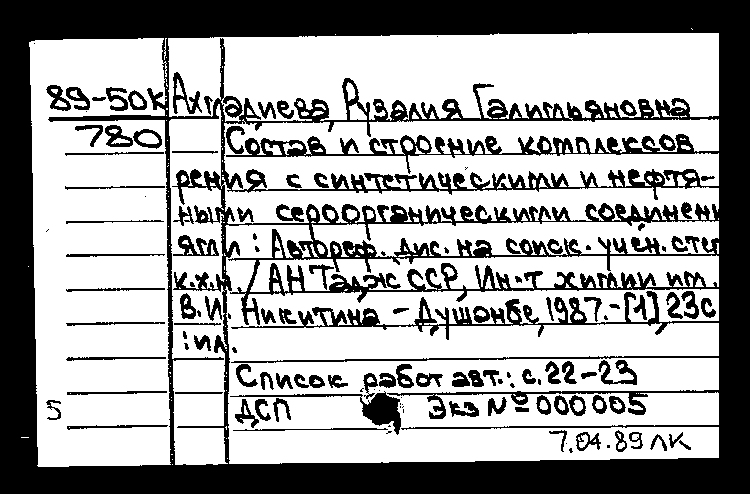 89-50к Ахмадиева, Рузалия Галимьяновна
780 Состав и строение комплексов
рения с синтетическими и нефтя-
ными сероорганическими соединени
ями : Автореф. дис. на соиск. учен. степ
к.х.н. / АН Тадж ССР, Ин-т химии им.
В.И. Никитина. - Душанбе, 1987. - [1], 23с
: ил.
Список работ авт.: с. 22-23
5 ДСП Экз № 000005
7.04.89 лк